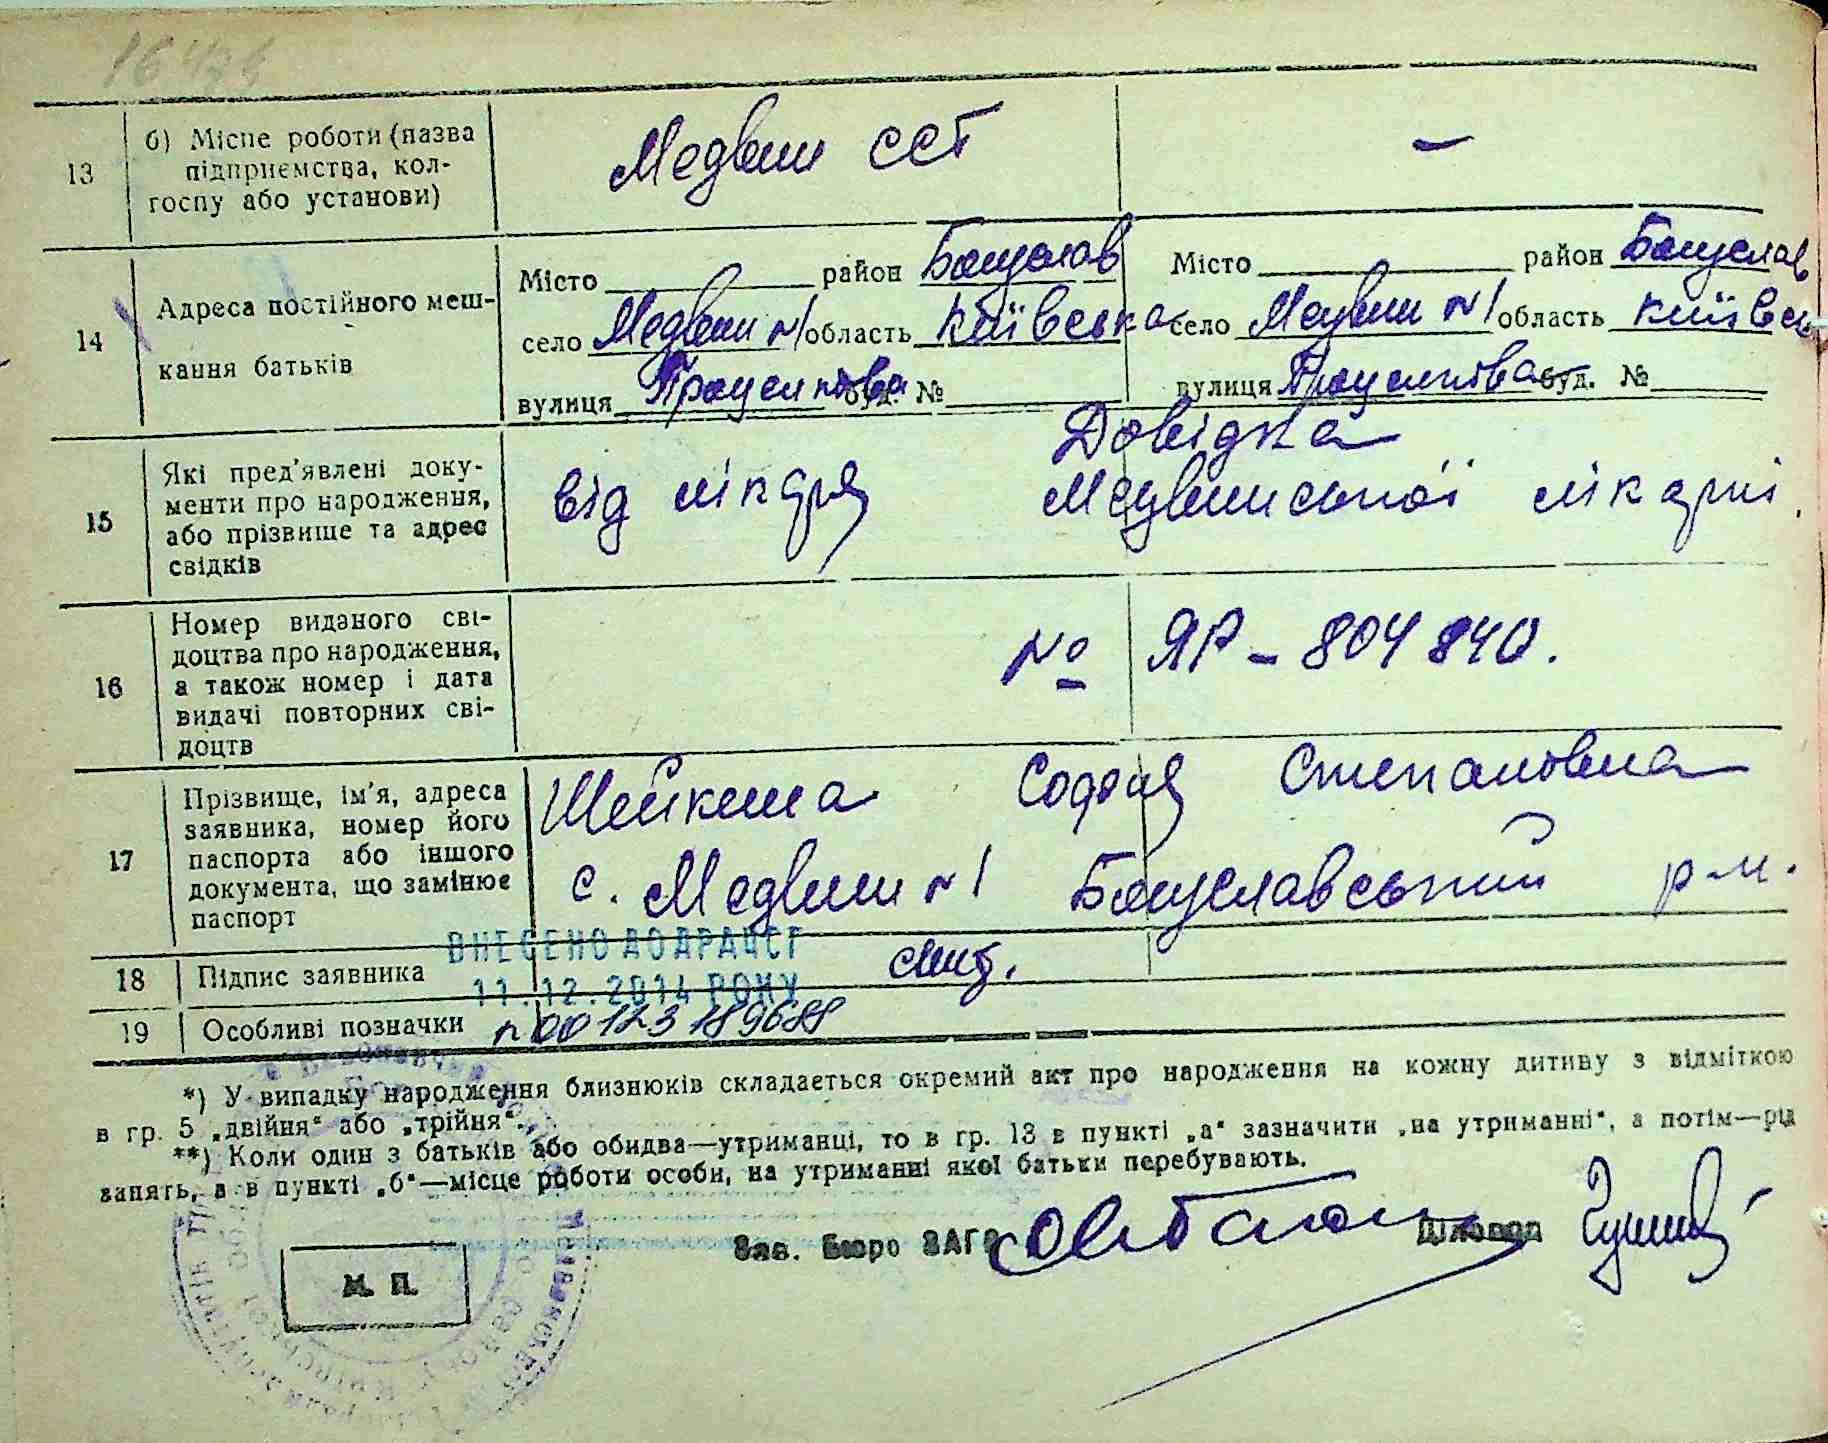 13 б) Місце роботи (назва
підприємства, кол-
госпу або установи)
Медвин ССТ —
14 Адреса постійного меш-
кання батьків
Місто район Богуслав Місто район Богуслав
село Медвин №1 область Київська село Медвин №1 область Київсь
вулиця буд. № вулиця буд. №
15 Які пред'явлені доку-
менти про народження,
або прізвище та адрес
свідків
Довідка
від лікаря Медвинської лікарні.
16 Номер виданого сві-
доцтва про народження,
а також номер і дата
видачі повторних сві-
доцтв
№ ЯР – 804840.
17 Прізвище, ім'я, адреса
заявника, номер його
паспорта або іншого
документа, що замінює
паспорт
Шейкина Софія Степановна
с. Медвин №1 Богуславський р-н.
ВНЕСЕНО ДО ДРАЦСГ
11.12.2014 РОКУ
18 Підпис заявника
19 Особливі позначки 00123189688
*) У випадку народження близнюків складається окремий акт про народження на кожну дитину з відміткою
в гр. 5 „двійня“ або „трійня“.
**) Коли один з батьків або обидва—утриманці, то в гр. 13 в пункті „а“ зазначити „на утриманні“, а потім—рід
занять, а в пункті „б“—місце роботи особи, на утриманні якої батьки перебувають.
Зав. Бюро ЗАГС Діловод
М. П.